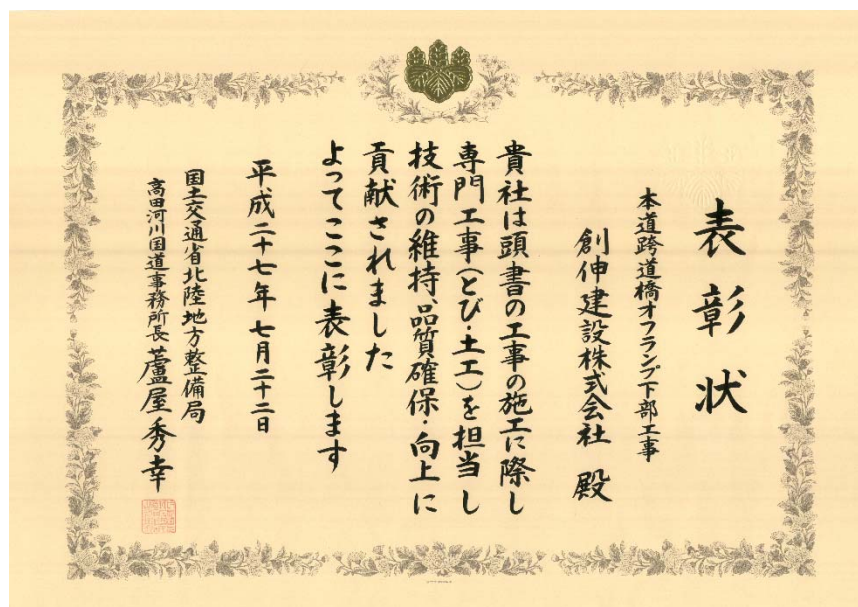 表彰状
本道跨道橋オフランプ下部工事
創伸建設株式会社 殿
貴社は頭書の工事の施工に際し
専門工事(とび・土工)を担当し
技術の維持、品質確保・向上に
貢献されました
よってここに表彰します
平成二十七年七月二十二日
国土交通省北陸地方整備局
高田河川国道事務所長 蘆屋秀幸